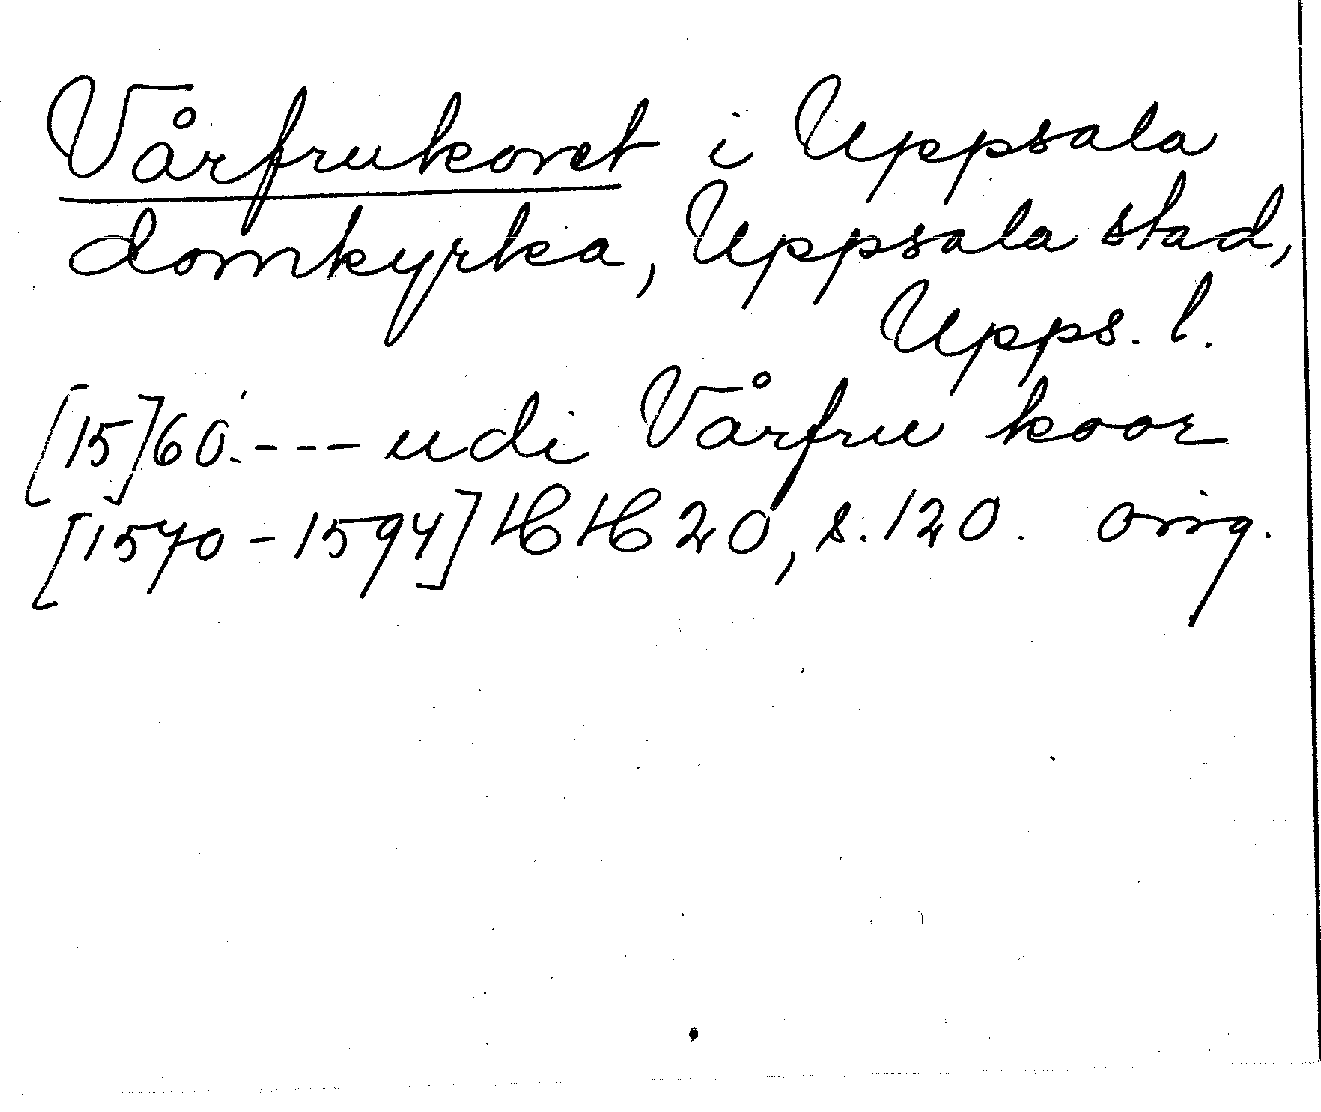 Vårfrukoret i Uppsala
domkyrka, Uppsala stad,
Upps. l.
[15]60. --- udi Vårfru koor
[1570-1594] HH 20, s. 120. orig.